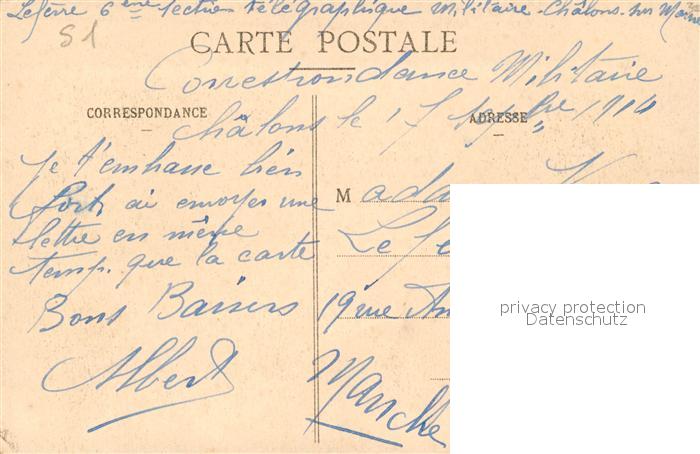 Lefèvre 6ème section télégraphique militaire Châlons sur Marne
51
CARTE POSTALE
Correspondance Militaire
CORRESPONDANCE
ADRESSE
Châlons le 17 7bre 1914
Je t'embrasse bien
fort, ai envoyer une
lettre en même
temp. que la carte
Bons Baisers
Albert
M
Le
19 rue
Manche
privacy protection
Datenschutz